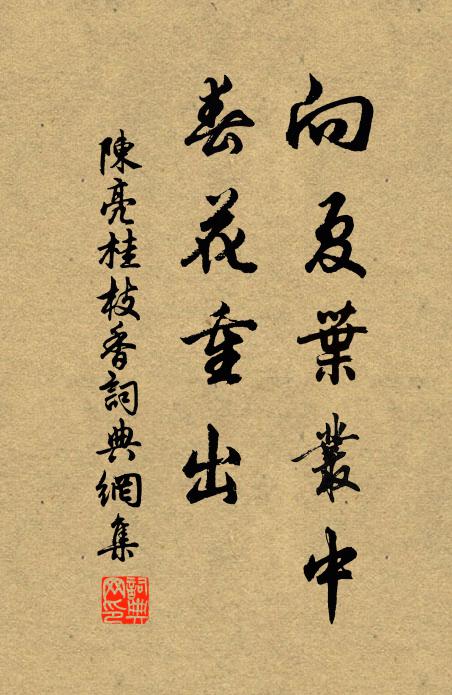 向夏葉叢中
春花重出
陳亮桂枝香詞典網集
詞典网印